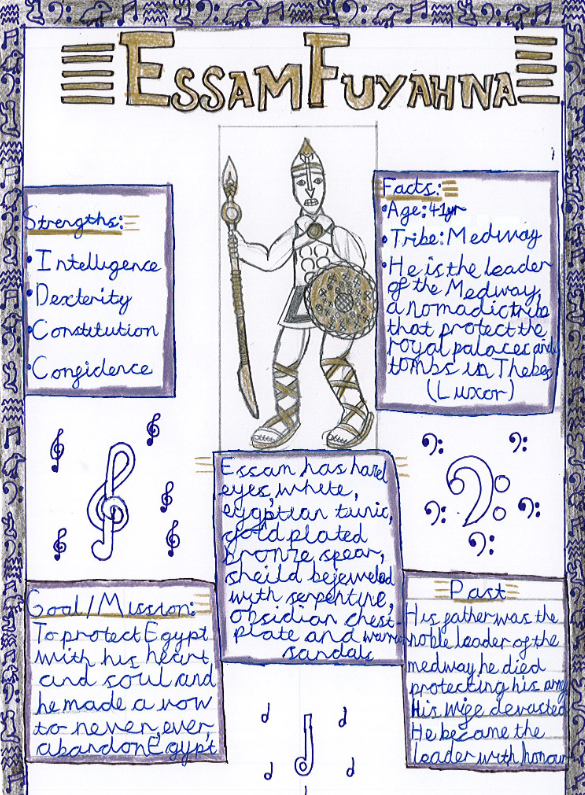 ESSAM FUYAHNA
Strengths:
•Intelligence
•Dexterity
•Constitution
•Confidence
Facts:
•Age: 41yr
•Tribe: Medway
•He is the leader
of the Medway,
a nomadic tribe
that protect the
royal palaces and
tombs in Thebes
(Luxor)
Essam has hard
eyes, white,
egyptian tunic,
gold plated
bronze spear,
sheild bejeweled
with serpentine,
obsidian chest-
plate and
sandals
Goal/Mission:
To protect Egypt
with his heart
and soul and
he made a vow
to never, ever,
abandon Egypt
Past
His father was the
noble leader of the
medway he died
protecting his army
His wife devasted
He became the
leader with honour